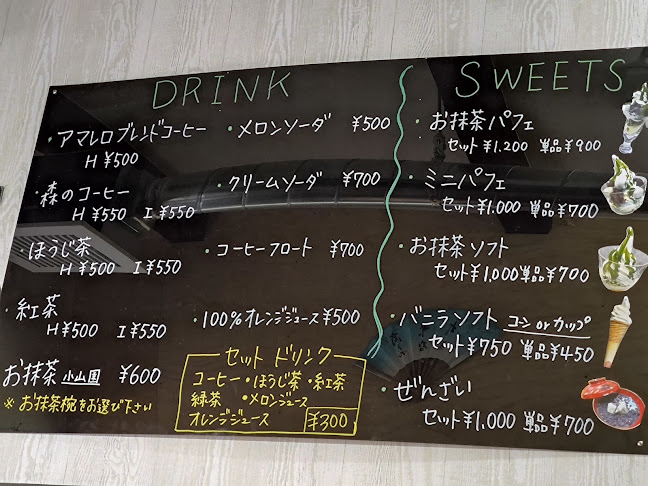 DRINK
・アマレロブレンドコーヒー
H ¥500
・森のコーヒー
H ¥550 I ¥550
ほうじ茶
H ¥500 I ¥550
・紅茶
H ¥500 I ¥550
お抹茶 小山園 ¥600
※お抹茶椀をお選び下さい
・メロンソーダ ¥500
・クリームソーダ ¥700
・コーヒーフロート ¥700
・100%オレンジジュース ¥500
セットドリンク
コーヒー・ほうじ茶・紅茶
緑茶 ・メロンジュース
オレンジジュース ¥300
SWEETS
・お抹茶パフェ
セット¥1.200 単品¥900
・ミニパフェ
セット¥1.000 単品¥700
・お抹茶ソフト
セット¥1,000 単品¥700
・バニラソフト コーン or カップ
セット¥750 単品¥450
・ぜんざい
セット¥1,000 単品¥700